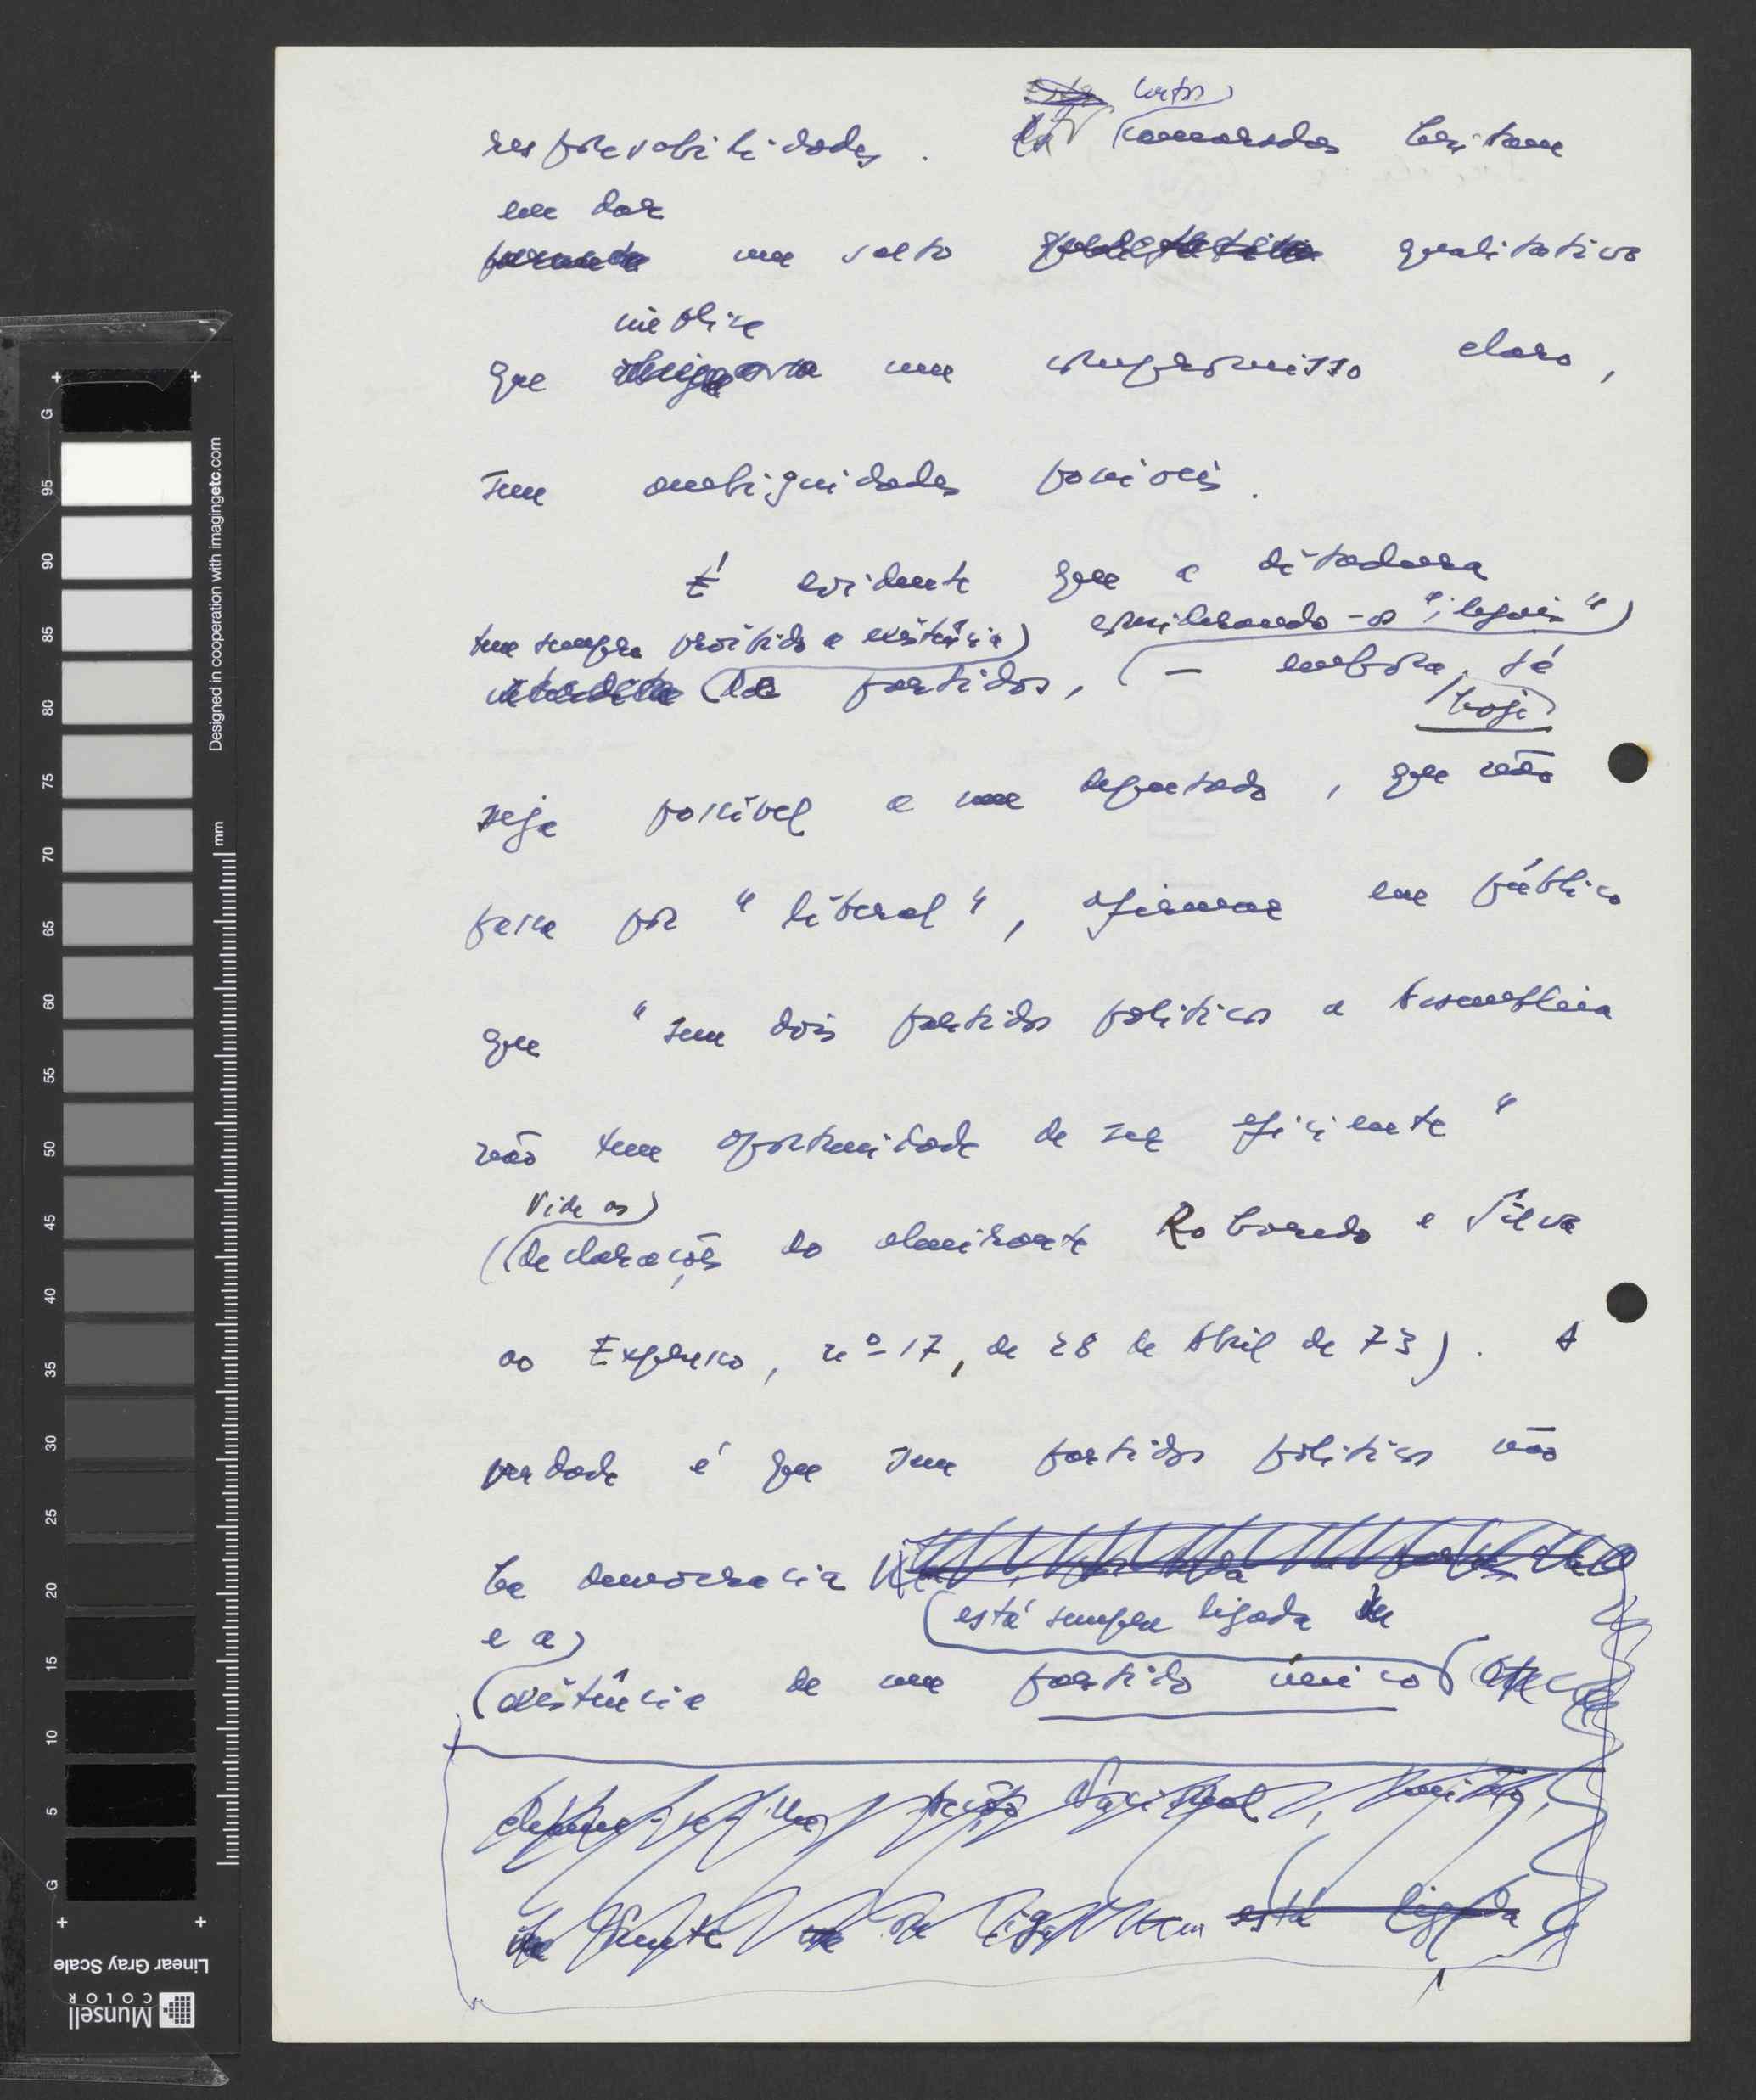 certos
responsabilidades. camaradas hesitam
em dar
um salto qualitativo
implica
que um compromisso claro,
sem ambiguidades possíveis.
É evidente que a ditadura
tem sempre proibido a existência considerando-os "ilegais"
de partidos, — embora já
hoje
seja possível a um deputado, que não
passa por "liberal", afirmar em público
que "sem dois partidos políticos a Assembleia
não tem oportunidade de ser eficiente"
Vide as
(declarações do almirante Roboredo e Silva
ao Expresso, nº 17, de 28 de Abril de 73). A
verdade é que sem partidos políticos não
há democracia
está sempre ligada
e a
existência de um partido único
está ligada
Designed in cooperation with imagingetc.com
mm
G 95 90 85 80 75 70 65 60 55 50 45 40 35 30 25 20 15 10 5 G
Linear Gray Scale
Munsell
COLOR